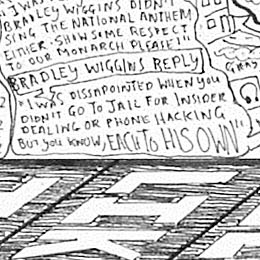 "I WAS
BRADLEY WIGGINS DIDN'T
SING THE NATIONAL ANTHEM
EITHER. SHOW SOME RESPECT
TO OUR MONARCH PLEASE"!!
BRADLEY WIGGINS REPLY
"I WAS DISSAPOINTED WHEN YOU
DIDN'T GO TO JAIL FOR INSIDER
DEALING OR PHONE HACKING
BUT YOU KNOW, EACH TO HIS OWN"
GRAY